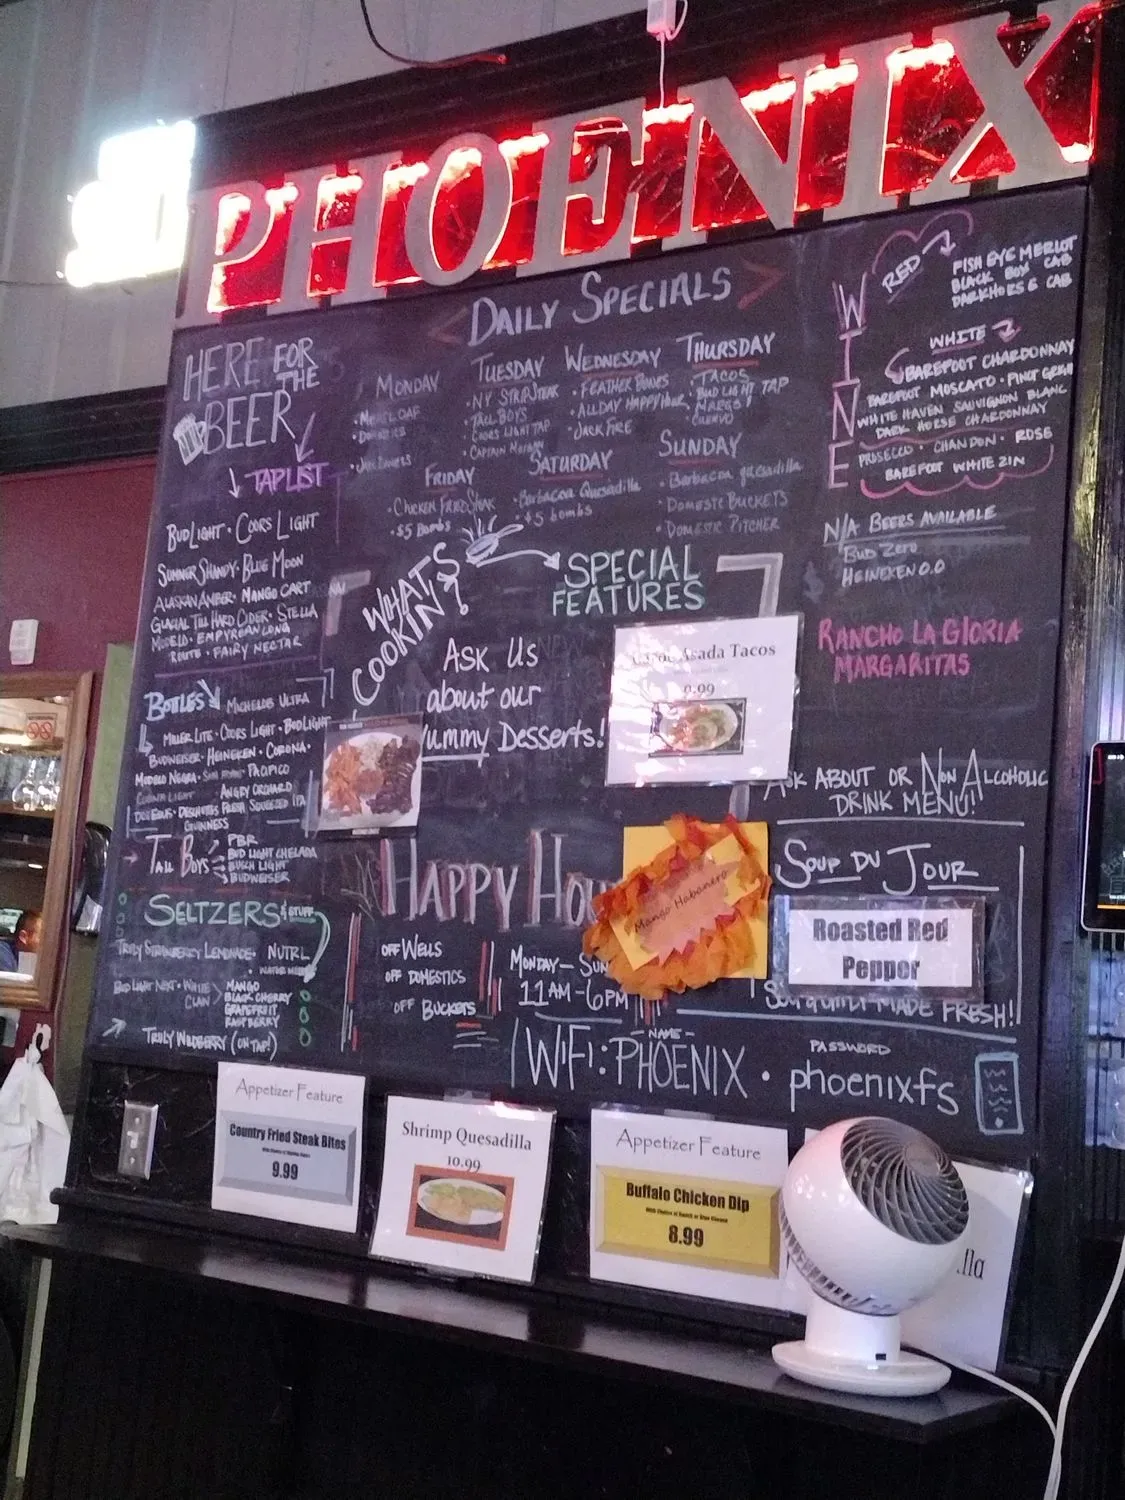 PHOENIX
DAILY SPECIALS
MONDAY
MEATLOAF
DOMESTICS
JACK DANIELS
TUESDAY
NY STRIP STEAK
TALL BOYS
COORS LIGHT TAP
CAPTAIN MORGAN
WEDNESDAY
FEATHER BONES
ALL DAY HAPPY HOUR
JACK FIRE
THURSDAY
TACOS
BUD LIGHT TAP
MARGS
CUERVO
FRIDAY
CHICKEN FRIED STEAK
$5 BOMBS
SATURDAY
Barbacoa Quesadilla
$5 bombs
SUNDAY
Barbacoa quesadilla
DOMESTIC BUCKETS
DOMESTIC PITCHER
HERE FOR
THE
BEER
TAPLIST
BUD LIGHT • COORS LIGHT
SUMMER SHANDY • BLUE MOON
ALASKAN AMBER • MANGO CART
GLACIAL TILL HARD CIDER • STELLA
MODELO • EMPYREAN LONG
ROUTE • FAIRY NECTAR
BOTTLES
MICHELOB ULTRA
MILLER LITE • COORS LIGHT • BUD LIGHT
BUDWEISER • HEINEKEN • CORONA •
MODELO NEGRA • PACIFICO
CORONA LIGHT ANGRY ORCHARD
DOS EQUIS • DESCHUTES FRESH SQUEEZED IPA
GUINNESS
TALL BOYS
PBR
BUD LIGHT CHELADA
BUSCH LIGHT
BUDWEISER
SELTZERS & STUFF
TRULY STRAWBERRY LEMONADE • NUTRL
BUD LIGHT NEXT • WHITE
CLAW
MANGO
BLACK CHERRY
GRAPEFRUIT
RASPBERRY
TRULY WILDBERRY (ON TAP!)
WINE
RED
FISH EYE MERLOT
BLACK BOX CAB
DARKHORSE CAB
WHITE
BAREFOOT CHARDONNAY
BAREFOOT MOSCATO • PINOT GRIGIO
WHITE HAVEN SAUVIGNON BLANC
DARK HORSE CHARDONNAY
PROSECCO • CHANDON • ROSE
BAREFOOT WHITE ZIN
N/A BEERS AVAILABLE
BUD ZERO
HEINEKEN 0.0
RANCHO LA GLORIA
MARGARITAS
WHAT'S
COOKIN'?
SPECIAL
FEATURES
ASK US
about our
Yummy Desserts!
Asada Tacos
9.99
ASK ABOUT OR NON ALCOHOLIC
DRINK MENU!
HAPPY HOU
OFF WELLS
OFF DOMESTICS
OFF BUCKETS
MONDAY – SUN
11AM – 6PM
Mango Habanero
SOUP DU JOUR
Roasted Red
Pepper
MADE FRESH!
WIFI: NAME PHOENIX • PASSWORD phoenixfs
Appetizer Feature
Country Fried Steak Bites
9.99
Shrimp Quesadilla
10.99
Appetizer Feature
Buffalo Chicken Dip
With Choice of Ranch or Blue Cheese
8.99
lla